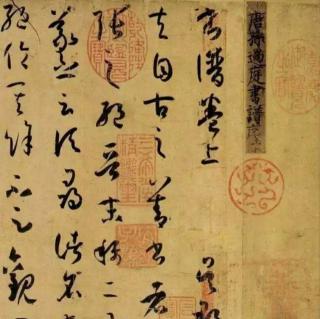 唐孫過庭書譜
書譜卷上 吳郡
夫自古之善書者
張之絕晉末稱二
羲之云頃尋諸名
絕倫其餘不足觀